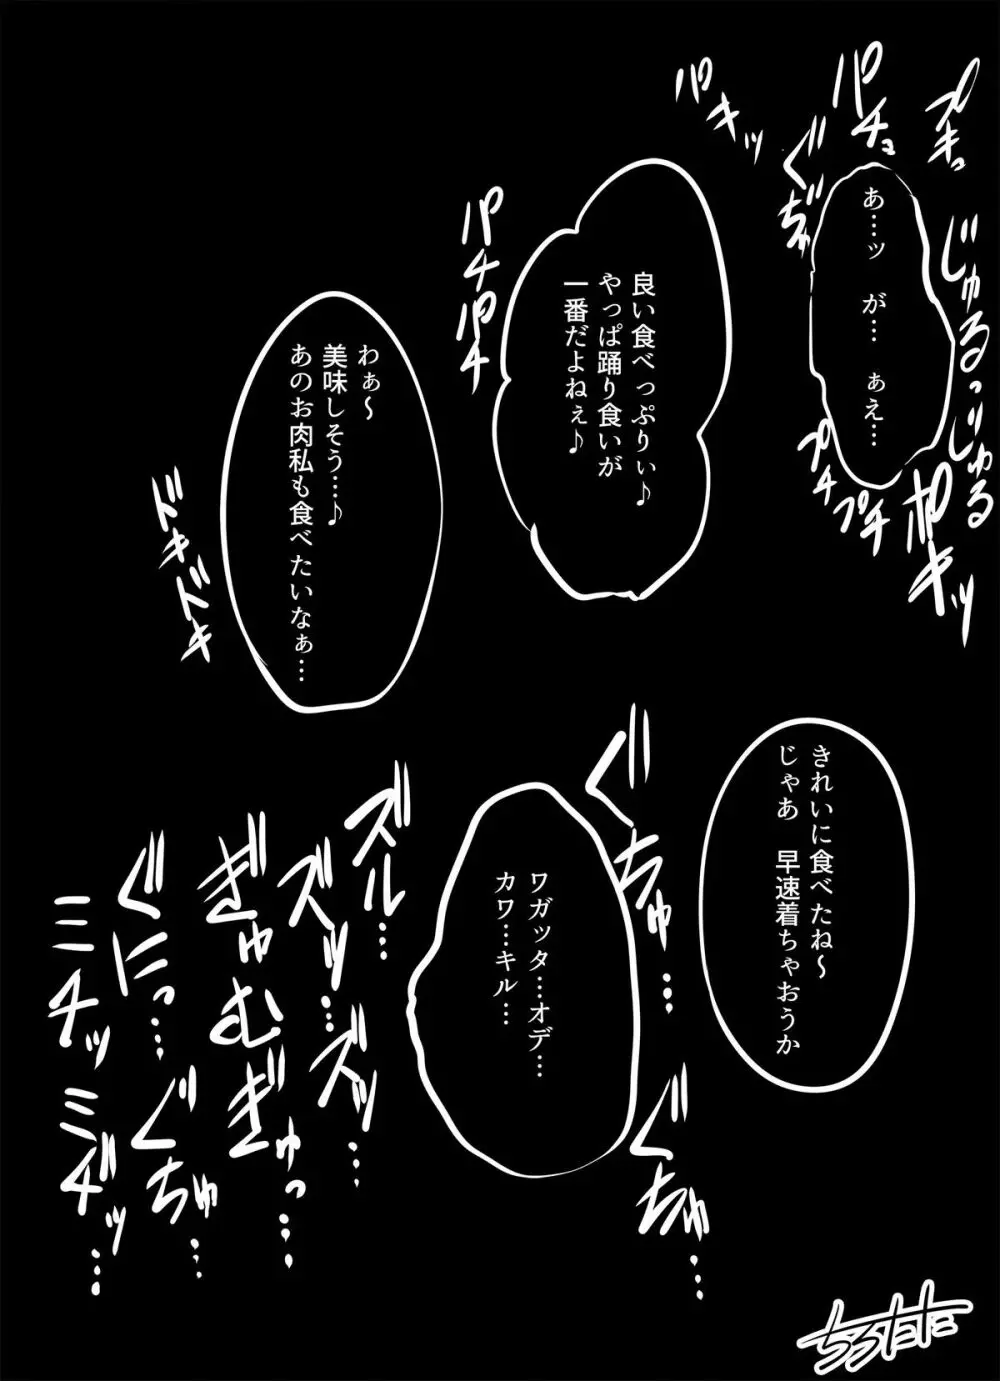 プキッ
パチュ
ぐぢゅ
じゅるっじゅる
あ…ッ　が…　ぁえ…
プチ
プチ
ポキッ
パキッ
良い食べっぷりぃ♪
やっぱ踊り食いが
一番だよねぇ♪
パチパチ
わぁ～
美味しそう…♪
あのお肉私も食べたいなぁ…
ドキドキ
きれいに食べたね～
じゃあ　早速着ちゃおうか
ぐちゅ…
ぐちゅ…
ワガッタ…オデ…
カワ…キル…
ズル…
ズッ…ズッ…
ぎゅむぎゅっ…
ぐにっ…ぐちゅ…
ミチッミヂッ…
ちろたた